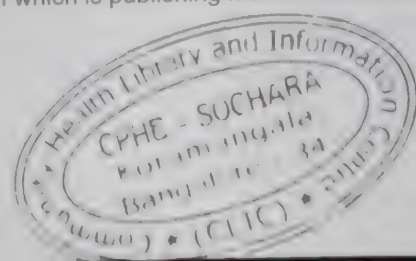 which is publishing
Health Library and Information Centre
CPHE - SOCHARA
Koramangala
Bangalore - 34
(Community) * (CLIC) *